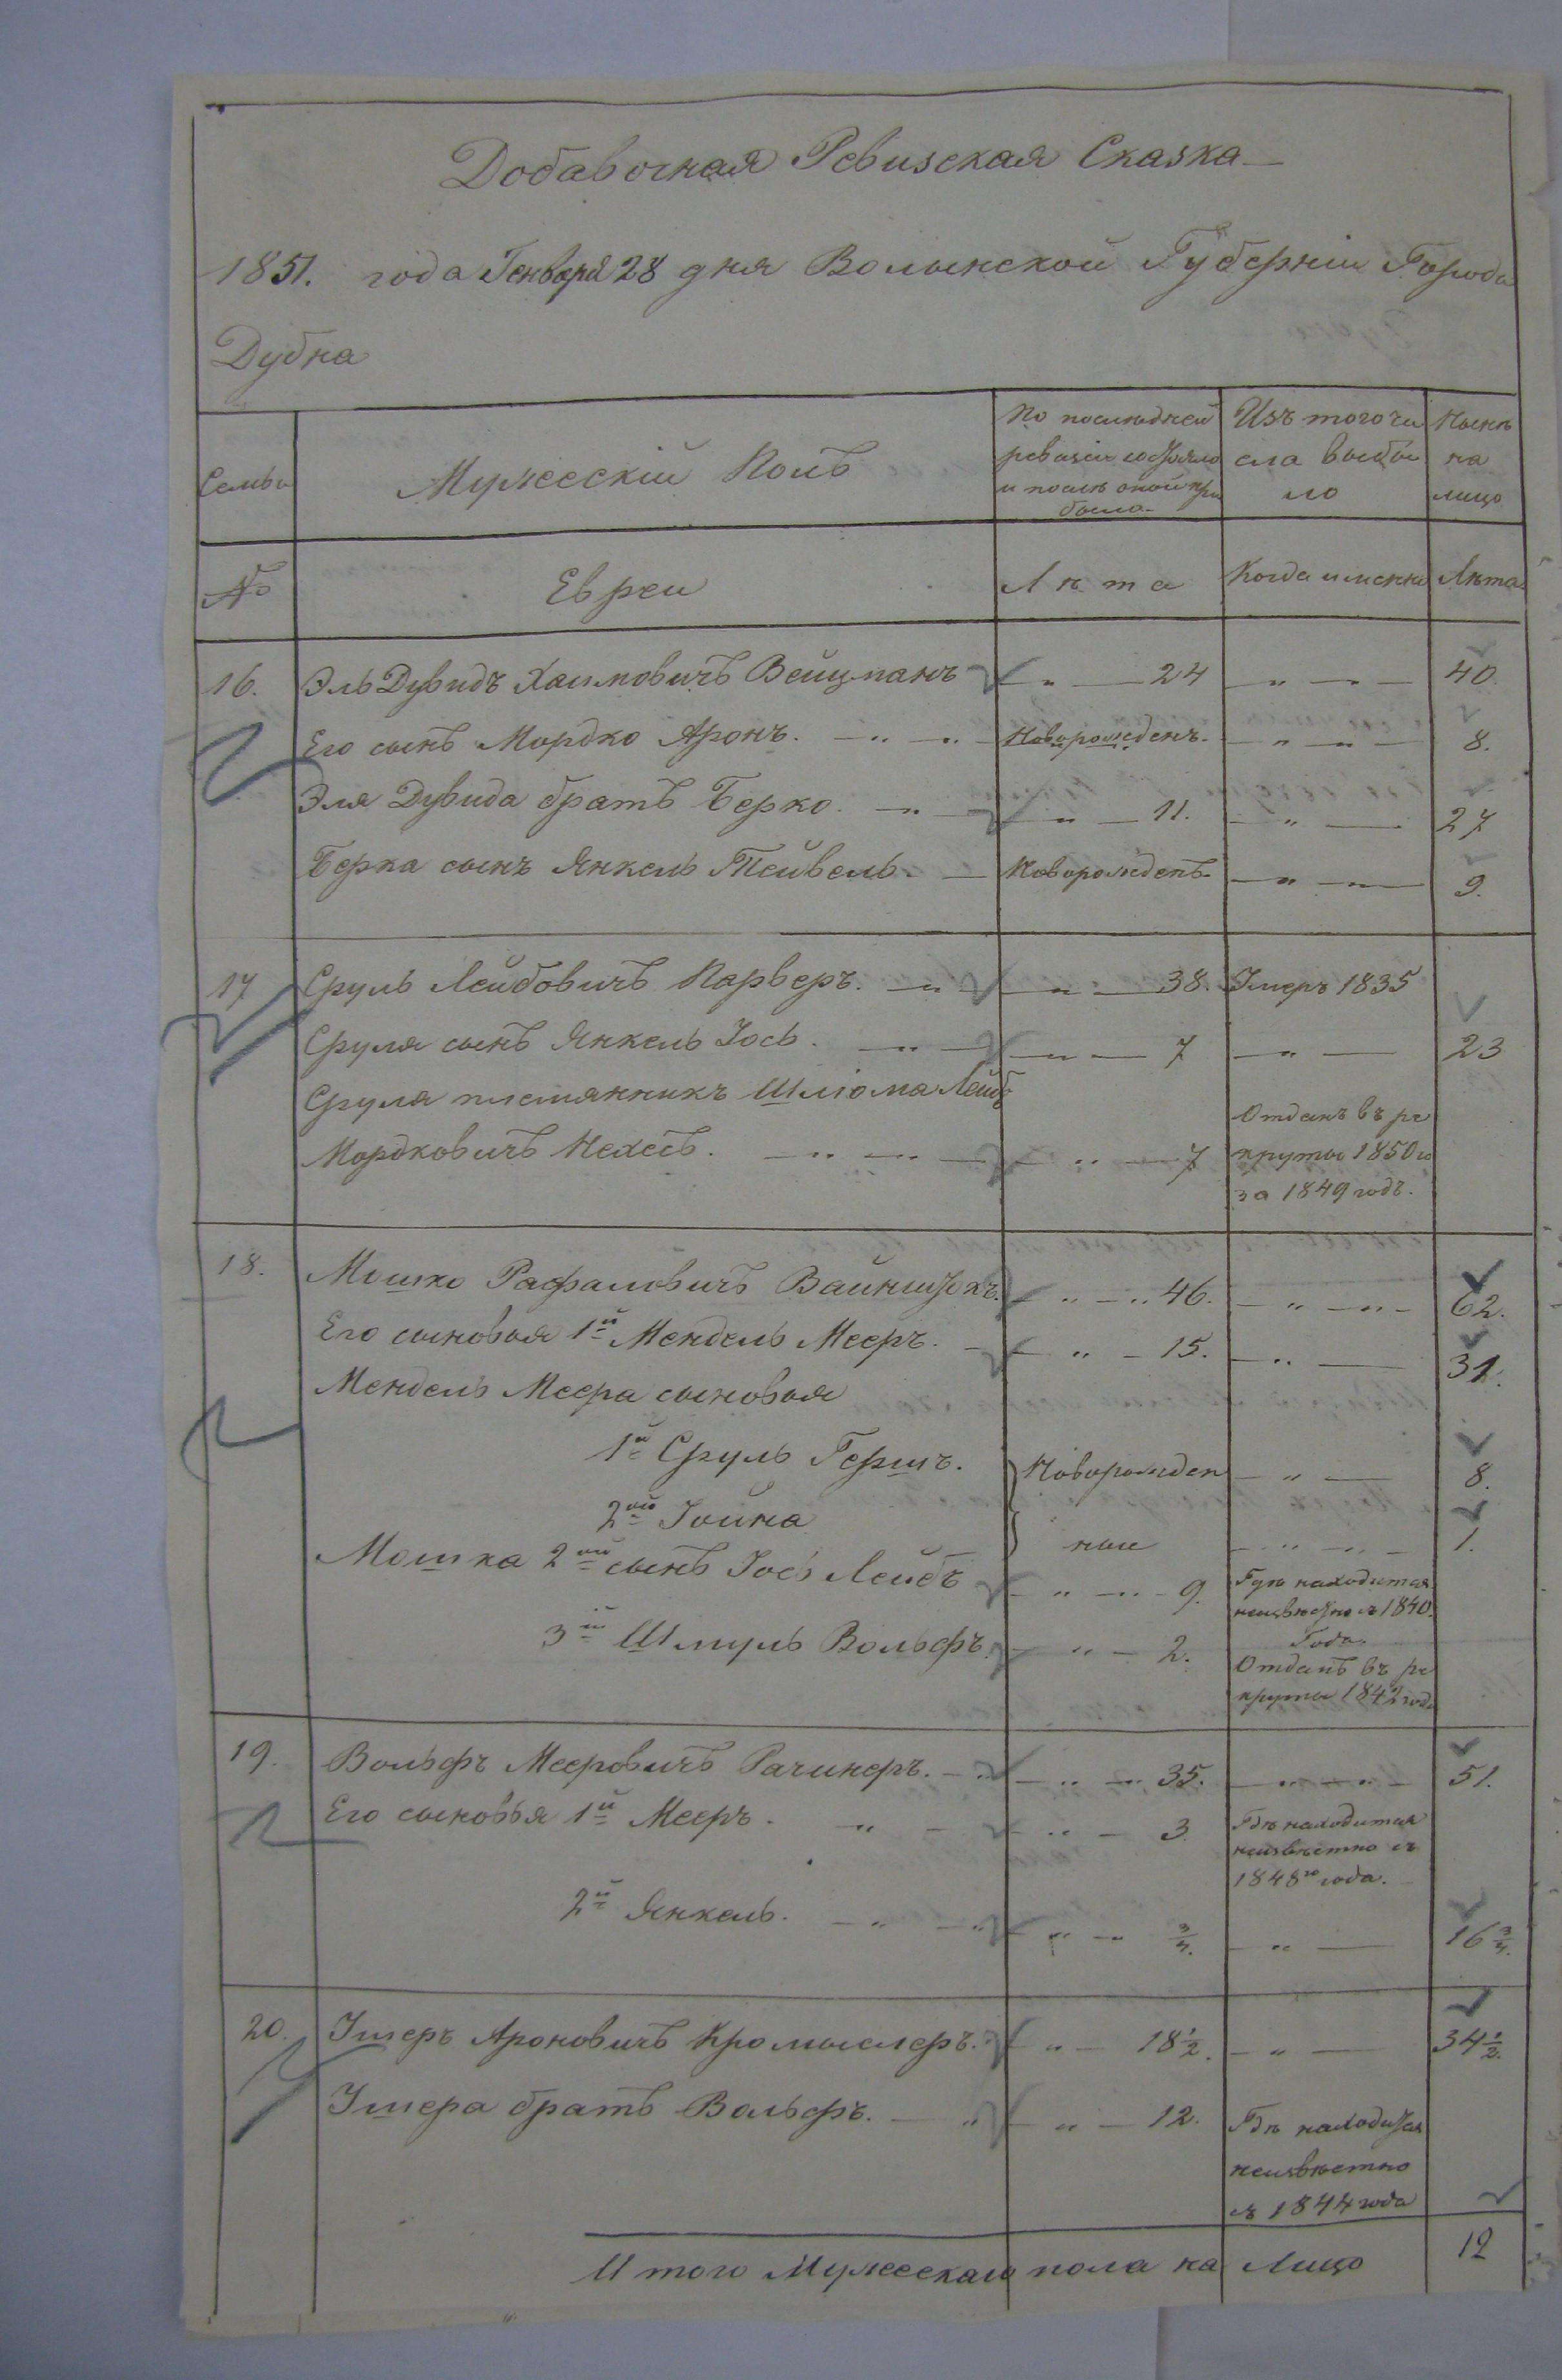 Добавочная Ревизская Сказка
1851. года Генваря 28 дня Волынской Губерніи Города
Дубна
Семьи
Мужескій Полъ
По последней ревизіи состояло и послѣ оной прибыло
Изъ того числа выбыло
Нынѣ на лицо
№
Евреи
Лѣта
Когда именно
Лѣта
16. Эль Дувидъ Хаимовичъ Вейцманъ — " — 24 — " — " — 40.
Его сынъ Мордко Аронъ. — " — " — Новорожденъ. — " — " — 8.
Эля Дувида братъ Берко. — " — " — 11. — " — 27
Берка сынъ Янкель Тейвель. — Новорожденъ — " — " — 9.
17 Сруль Лейбовичъ Карверъ. — " — " — 38. Умеръ 1835
Сруля сынъ Янкель Іось. — " — " — 7 — " — 23
Сруля племянникъ Шліома Лейбъ
Мордковичъ Нехесъ. — " — " — " — 7 Отданъ въ рекруты 1850 го за 1849 годъ.
18. Мошко Рафаловичъ — " — " 46. — " — " — 62.
Его сыновья 1й Мендель Мееръ. — " — 15. — " — 31.
Мендель Меера сыновья
1й Сруль Гершъ. Новорожден — " — 8.
2ой Іойна ные — " — " — 1.
Мошка 2ой сынъ Іось Лейбъ — " — " — 9. Гдѣ находится неизвѣстно съ 1840. Года.
3ій Шмуль Вольфъ. — " — 2. Отданъ въ рекруты 1842 года
19. Вольфъ Мееровичъ Рачинеръ. — " — " — " 35. — " — " — 51.
Его сыновья 1й Мееръ. — " — " — 3. Гдѣ находится неизвѣстно съ 1848го года.
2й Янкель. — " — " — " — 3/4. — " — 16 3/4.
20. Ушеръ Ароновичъ Кромыслеръ. — " — 18 1/2. — " — 34 1/2.
Ушера братъ Вольфъ. — " — " — 12. Гдѣ находится неизвѣстно съ 1844 года
Итого Мужескаго пола на Лицо 12